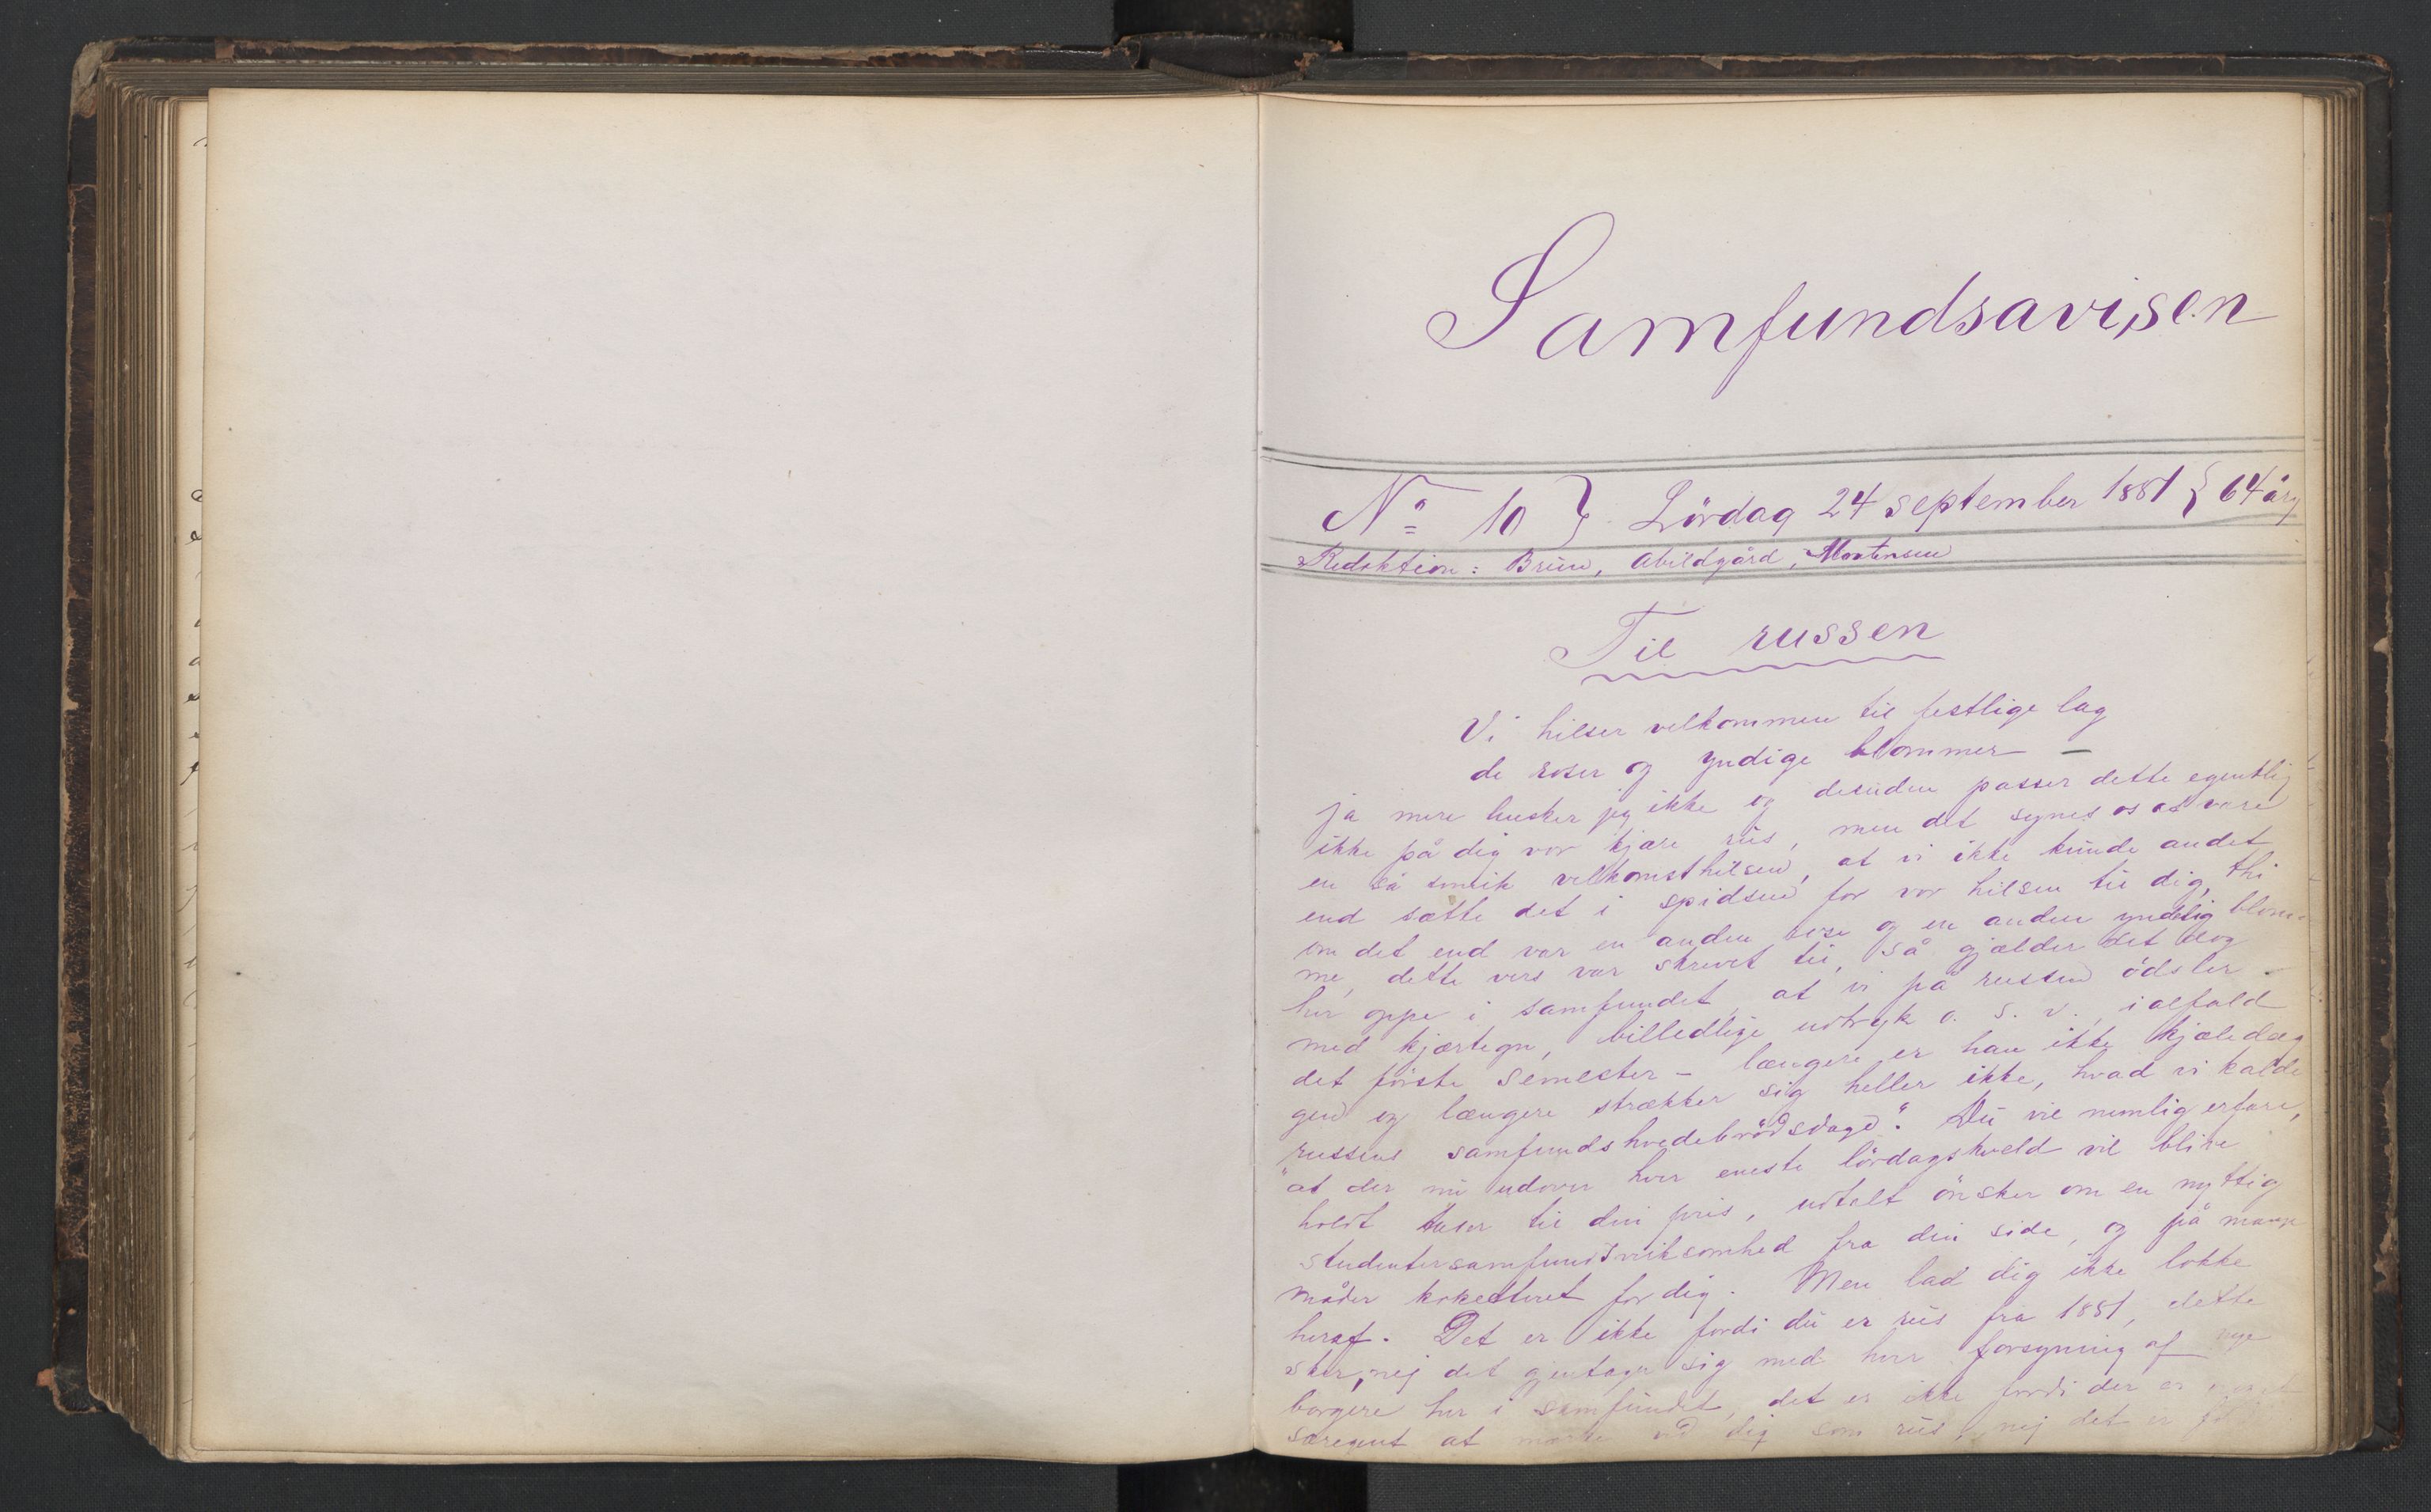 Samfundsavisen
No 10 } Lördag 24 september 1881 { 64 årg
Redaktion: Bruun, Abildgård, Mortensen
Til russen
Vi hilser velkommen til festlige lag
de roser og yndige blommer —
ja mere husker jeg ikke og desuden passer dette egentlig
ikke på dig vor kjære rus, men det synes os at være
en så smuk velkomsthilsen, at vi ikke kunde andet
end sætte det i spidsen for vor hilsen til dig, thi
om det end var en anden rose og en anden yndelig blom-
me, dette vers var skrevet til, så gjælder det dog
her oppe i samfundet, at vi på russen ödsler
med kjærtegn, billedlige udtryk o. s. v., ialfald
det förste semester – længere er han ikke kjæledæg
gen og længere strækker sig heller ikke, hvad vi kalde
russens samfundshvedebrödsdage". Du vil nemlig erfare,
"at der nu udover hver eneste lördagskveld vil blive
holdt taler til din pris, udtalt önsker om en nyttig
studentersamfundsvirksomhed fra din side, og på mange
måder koketteret for dig. Men lad dig ikke lokke
heraf. Det er ikke fordi du er rus fra 1881, dette
sker, nej det gjentager sig med hver forsyning af nye
borgere her i samfundet, det er ikke fordi der er noget
særegent at mærke ved dig som rus, nej det er